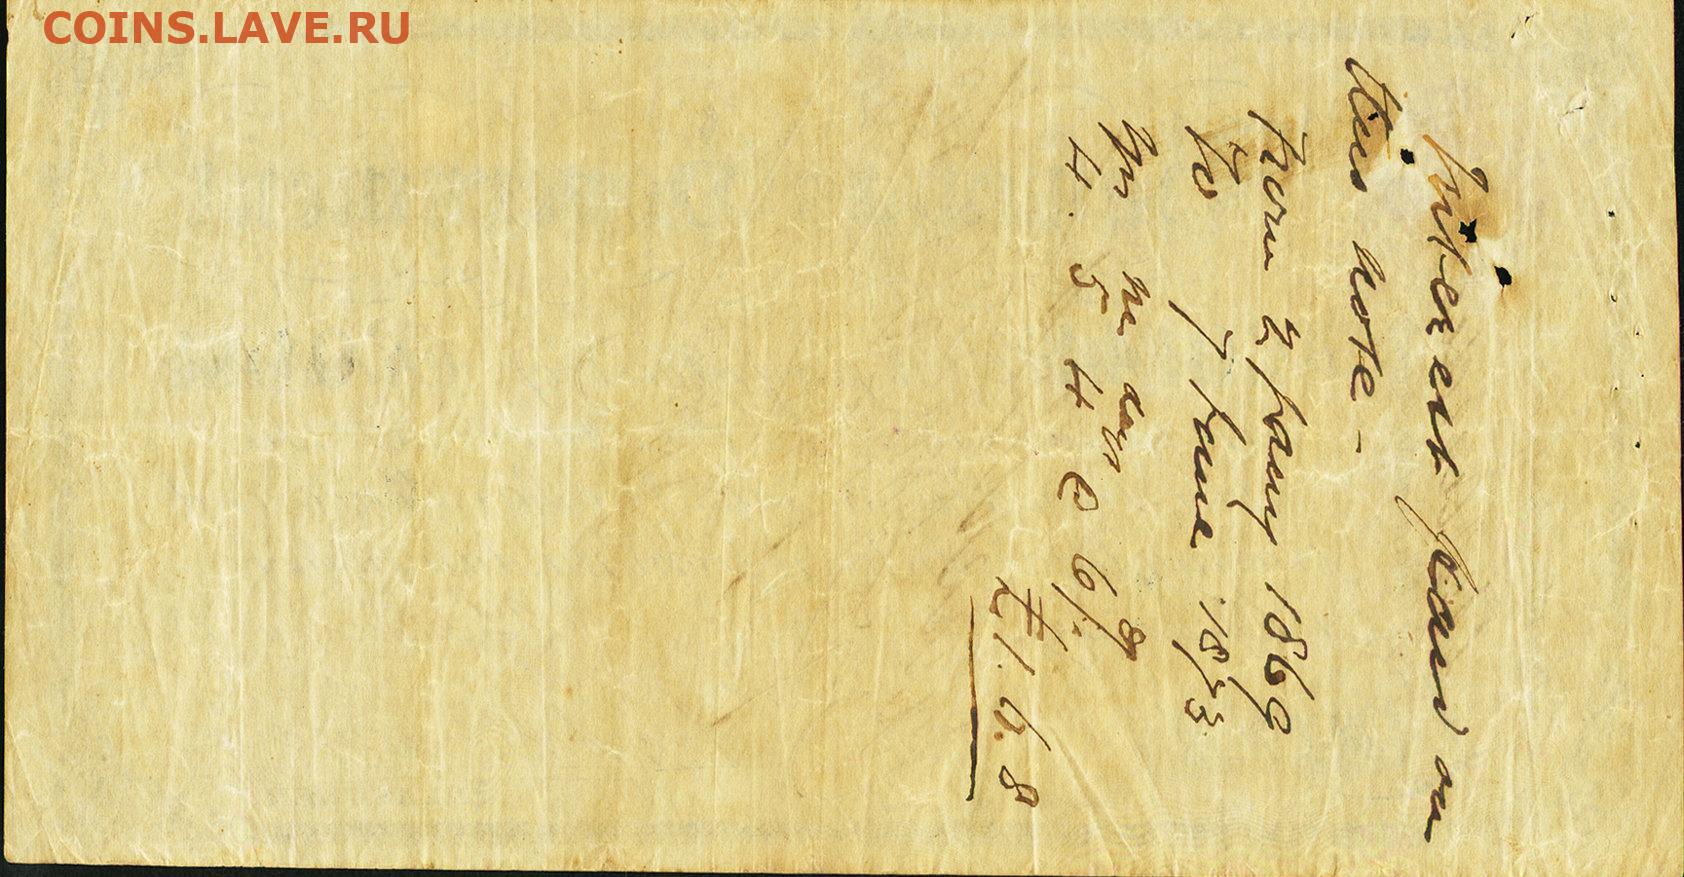 COINS.LAVE.RU
Interest paid on
this note -
From 2 Jany 1869
to 7 June 1873
Yrs m days
4. 5 4 @ 6/8
£1.6.8